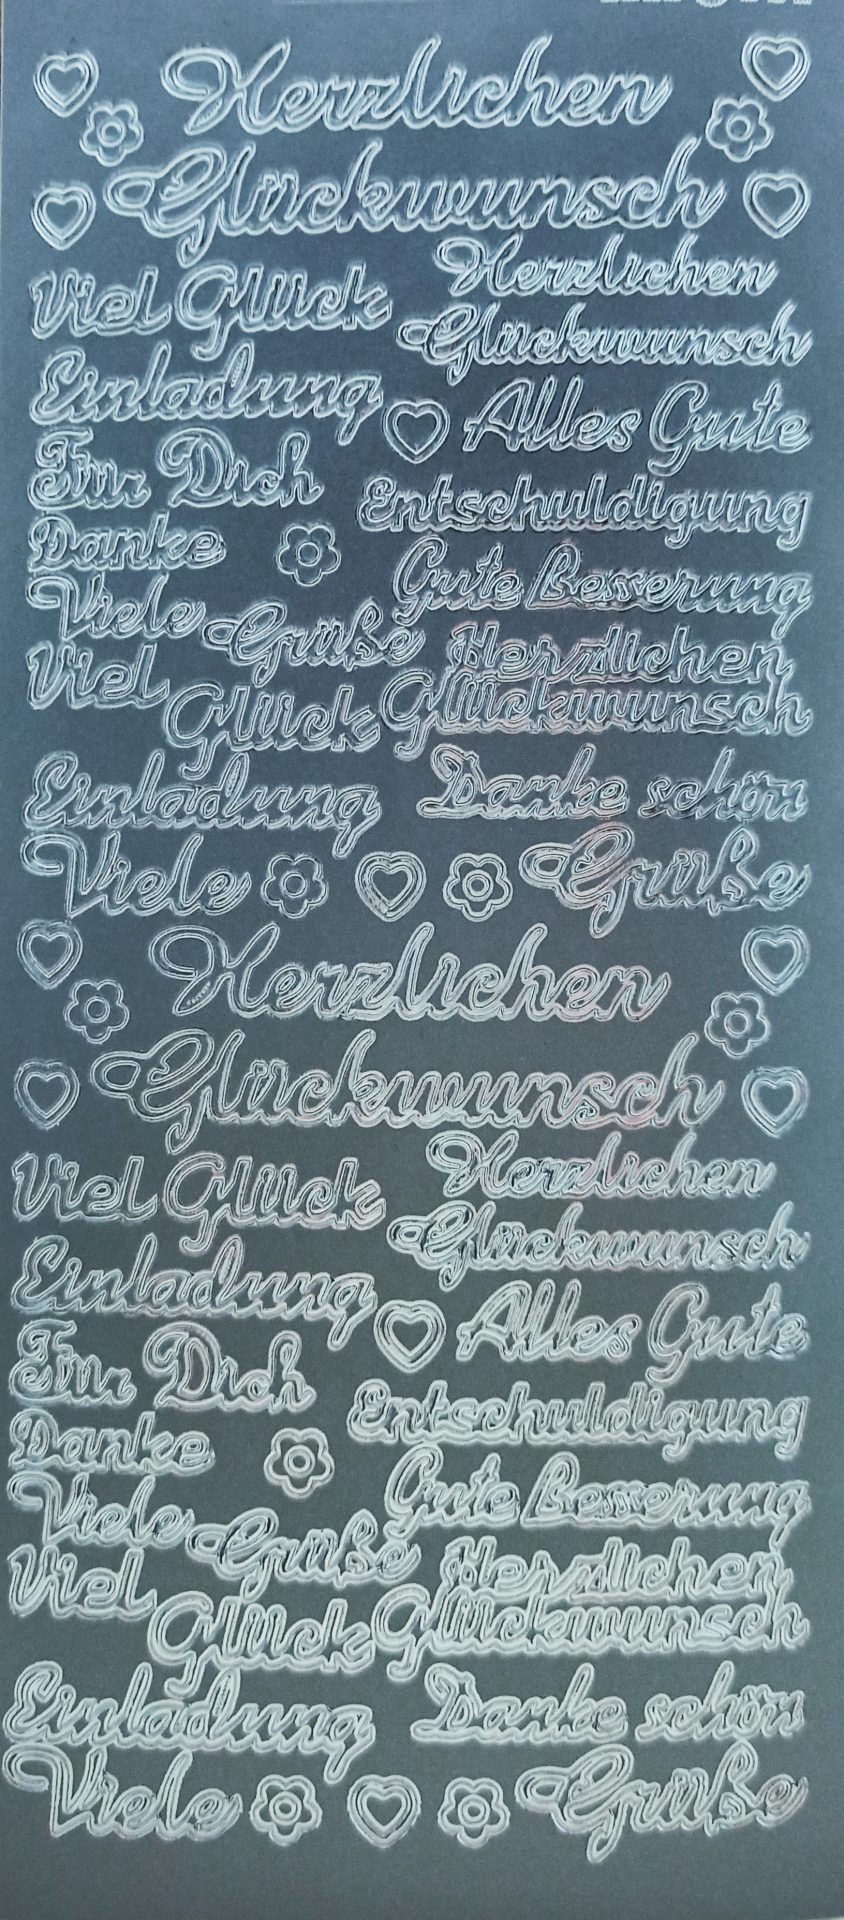 Herzlichen
Glückwunsch
Viel Glück
Herzlichen
Glückwunsch
Einladung
Alles Gute
Für Dich
Entschuldigung
Danke
Gute Besserung
Viele Grüße
Herzlichen
Glückwunsch
Viel
Glück
Einladung
Danke schön
Viele Grüße
Herzlichen
Glückwunsch
Viel Glück
Herzlichen
Glückwunsch
Einladung
Alles Gute
Für Dich
Entschuldigung
Danke
Gute Besserung
Viele Grüße
Herzlichen
Glückwunsch
Viel
Glück
Einladung
Danke schön
Viele Grüße